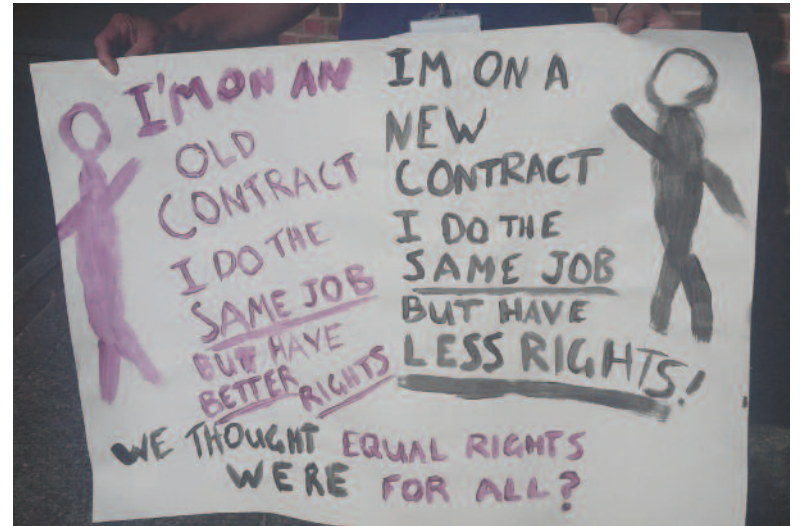 I'M ON AN
OLD
CONTRACT
I DO THE
SAME JOB
BUT HAVE
BETTER RIGHTS
IM ON A
NEW
CONTRACT
I DO THE
SAME JOB
BUT HAVE
LESS RIGHTS!
WE THOUGHT EQUAL RIGHTS
WERE FOR ALL?